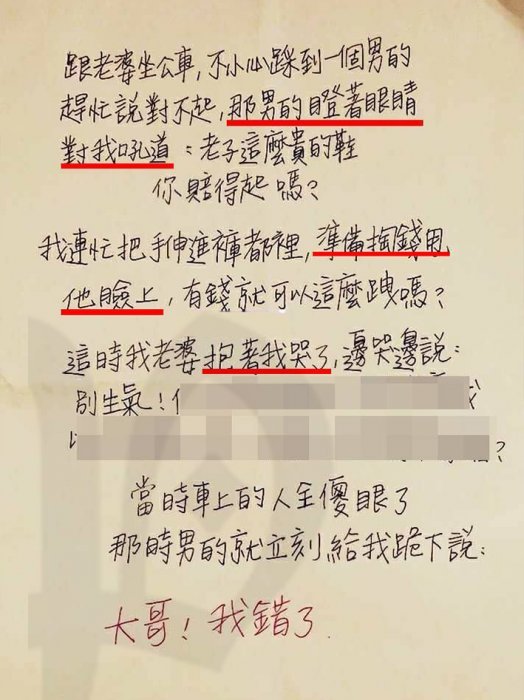 跟老婆坐公車，不小心踩到一個男的
趕忙說對不起，那男的瞪著眼睛
對我吼道：老子這麼貴的鞋
你賠得起嗎？
我連忙把手伸進褲都裡，準備掏錢甩
他臉上，有錢就可以這麼跩嗎？
這時我老婆抱著我哭了，邊哭邊說：
別生氣！
？
當時車上的人全傻眼了
那時男的就立刻給我跪下說：
大哥！我錯了.